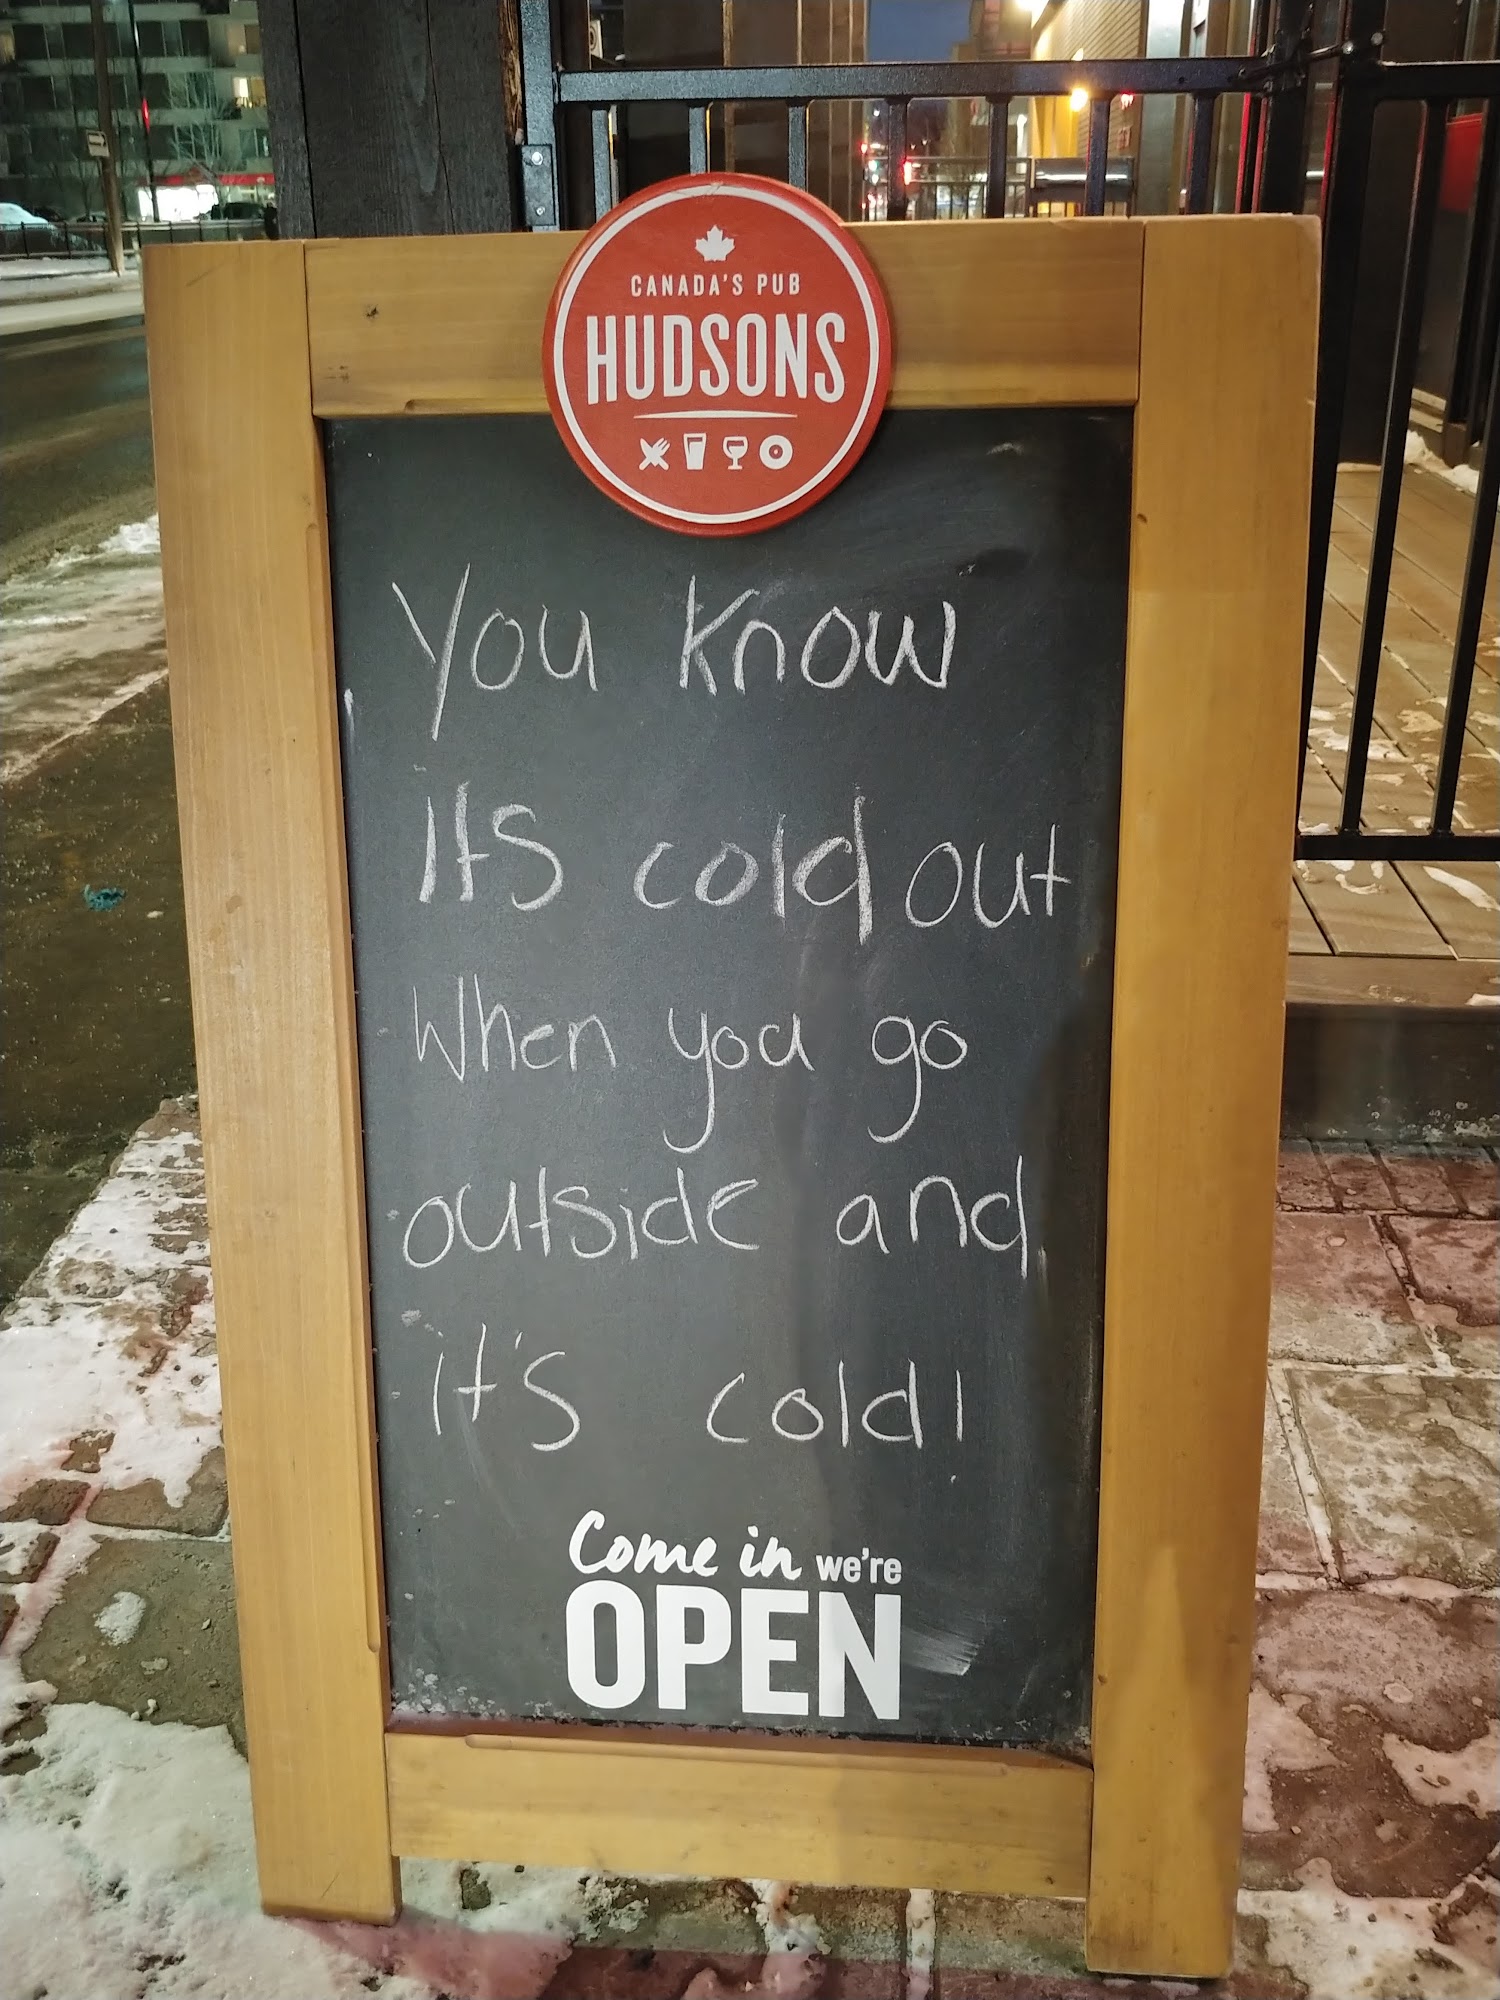 CANADA'S PUB
HUDSONS
You know
it's cold out
When you go
outside and
it's cold!
Come in we're
OPEN